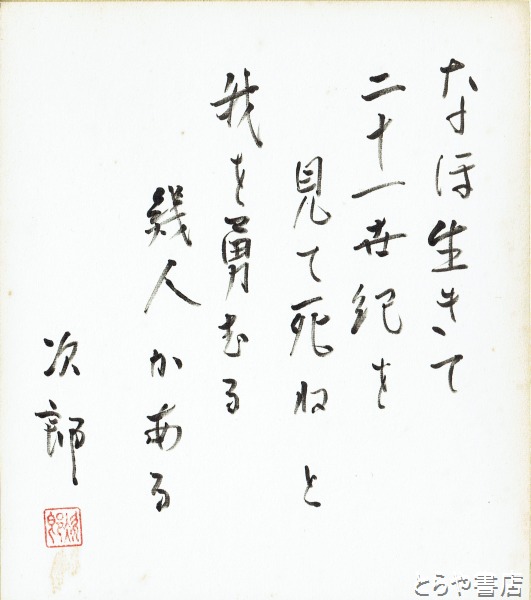 なほ生きて
二十一世紀を
見て死ねと
我を勇むる
幾人かある
次郎
とらや書店